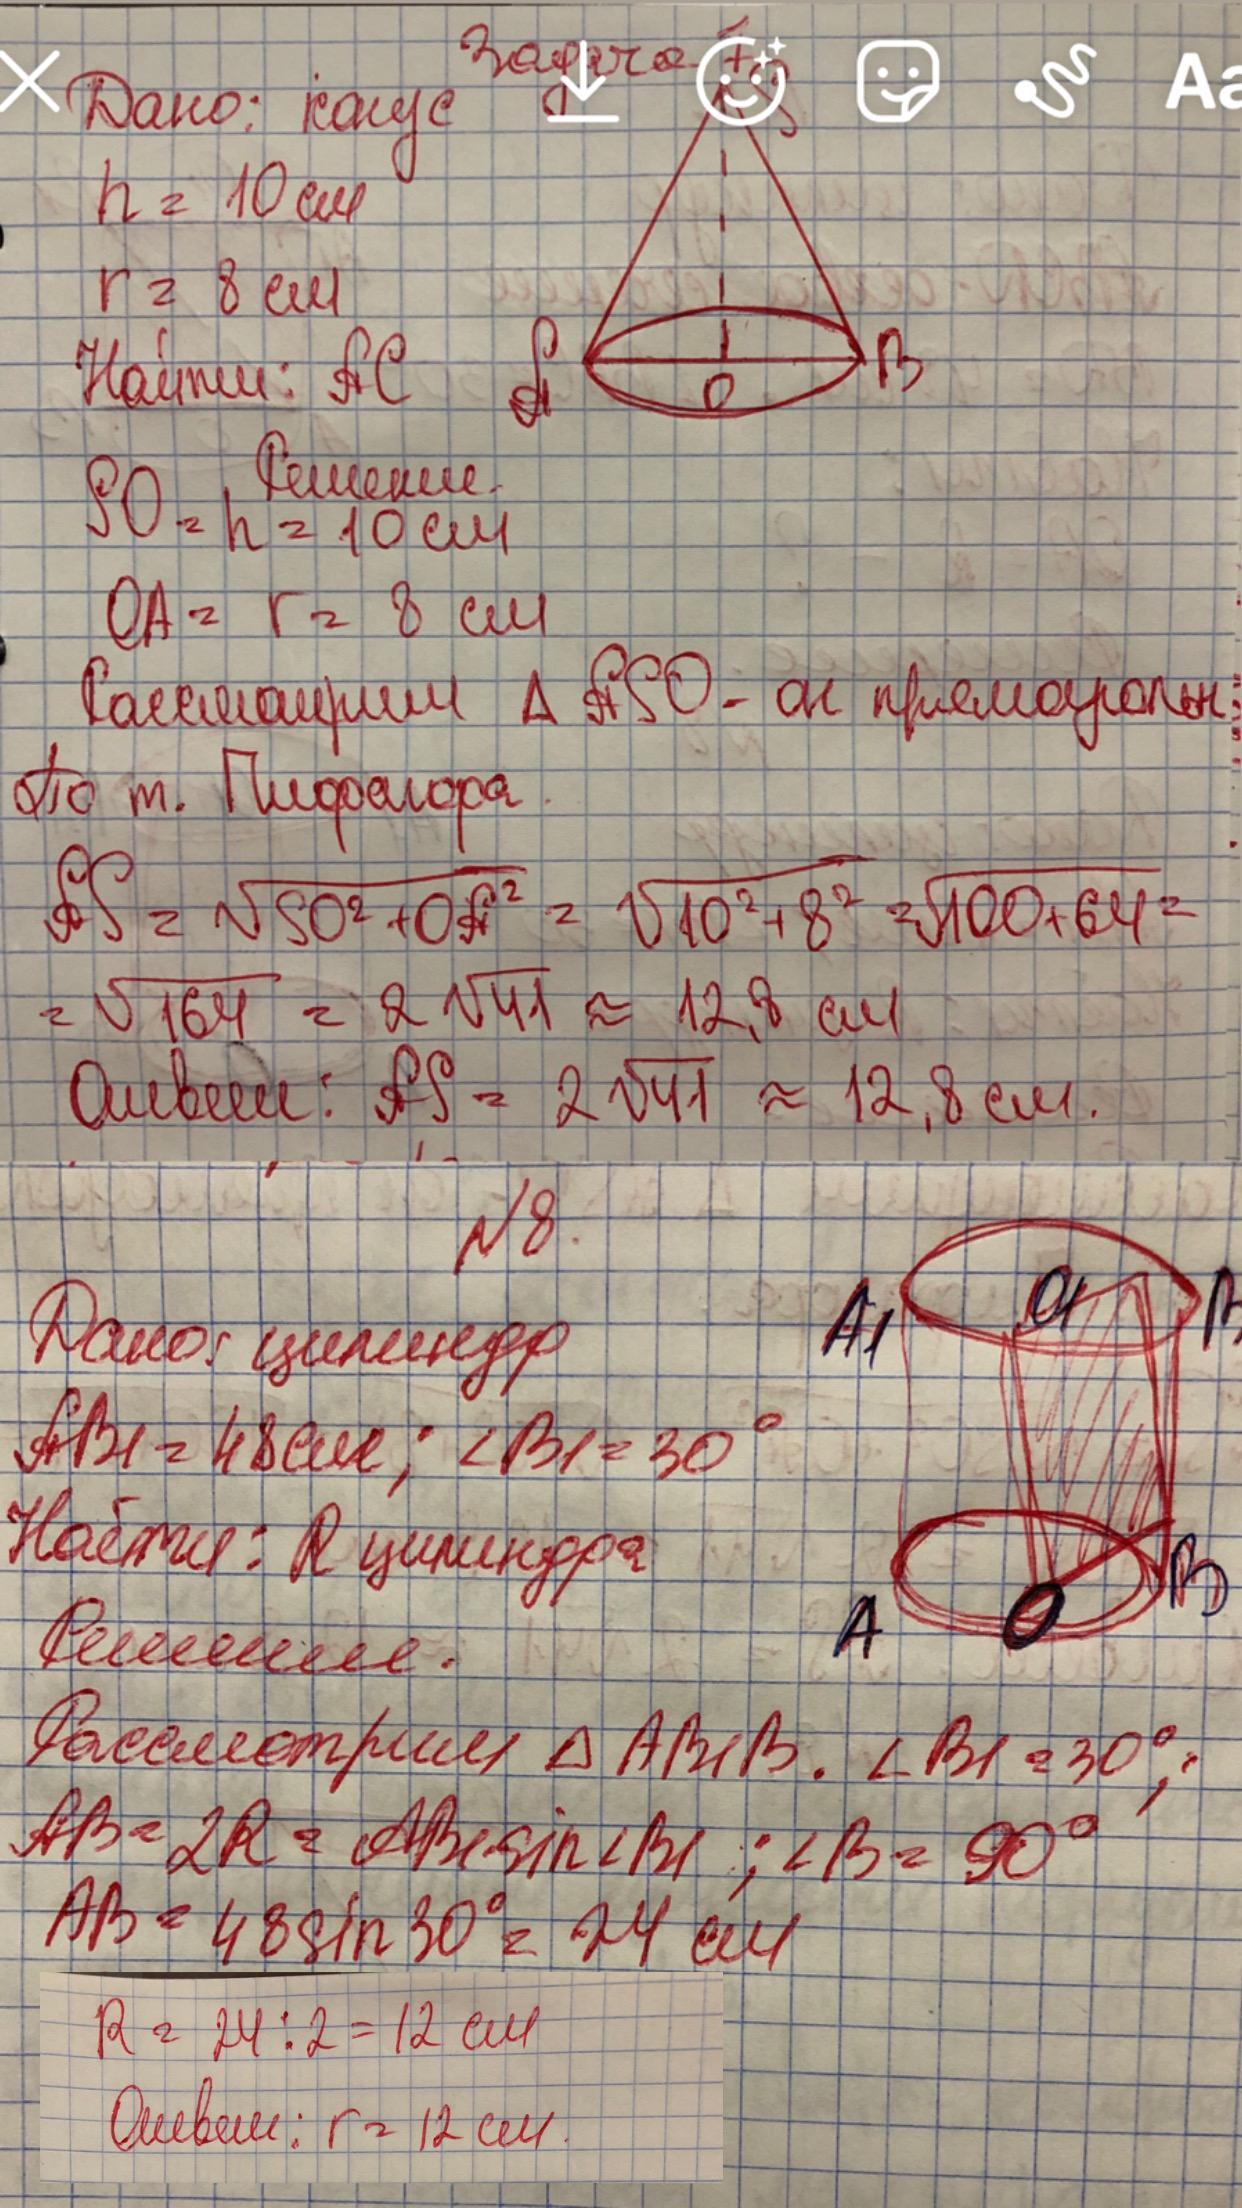 Задача
Дано: конус
h = 10 см
S
r = 8 см
Найти: AC
A
B
O
Решение.
SO = h = 10 см
OA = r = 8 см
Рассмотрим Δ ASO - он прямоугольн.
По т. Пифагора.
AS = √SO² + OA² = √10² + 8² = √100 + 64 =
= √164 = 2√41 ≈ 12,8 см
Ответ: AS = 2√41 ≈ 12,8 см.
№8.
Дано: цилиндр
A1
O1
B
AB1 = 48 см; ∠B1 = 30°
Найти: R цилиндра
A
O
B
Решение.
Рассмотрим Δ AB1B. ∠B1 = 30°;
AB = 2R = AB1·sin∠B1; ∠B = 90°
AB = 48 sin 30° = 24 см
R = 24 : 2 = 12 см
Ответ: r = 12 см.
Aa